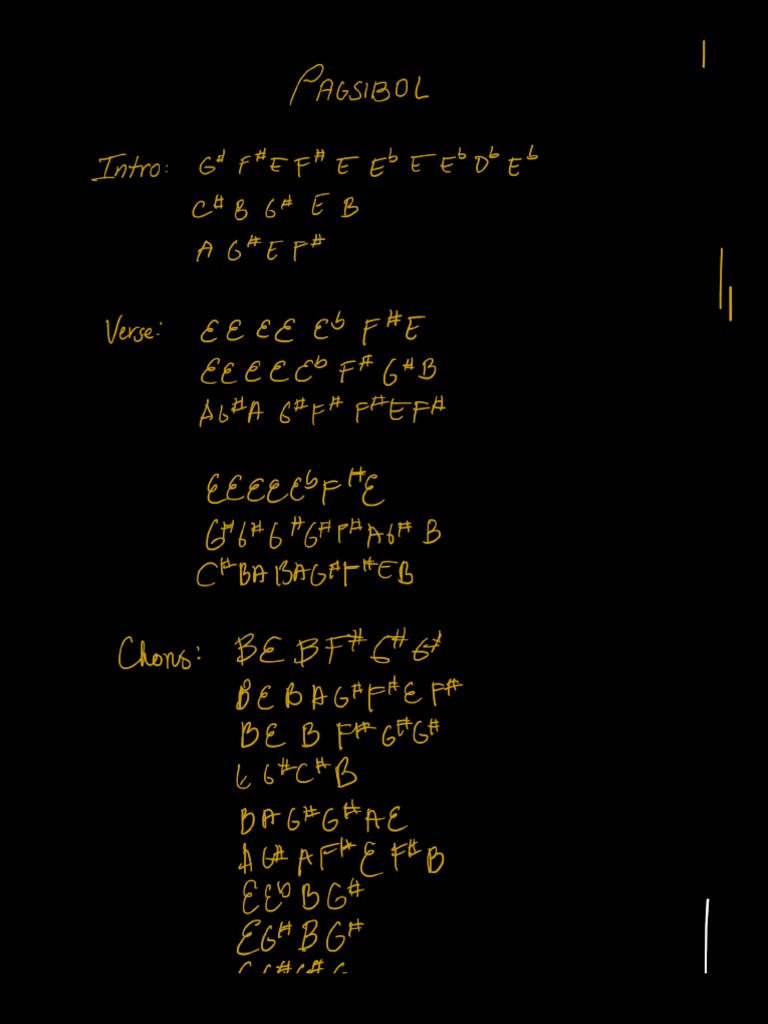 PAGSIBOL
Intro: G# F# E F# E Eb E Eb Db Eb
C# B G# E B
A G# E F#
Verse: E E E E Eb F# E
E E E E Eb F# G# B
A G# A G# F# F# E F#
E E E E Eb F# E
G# G# G# G# F# A G# B
C# B A B A G# F# E B
Chorus: B E B F# G# G#
B E B A G# F# E F#
B E B F# G# G#
E G# C# B
B A G# G# A E
A G# A F# E F# B
E Eb B G#
E G# B G#